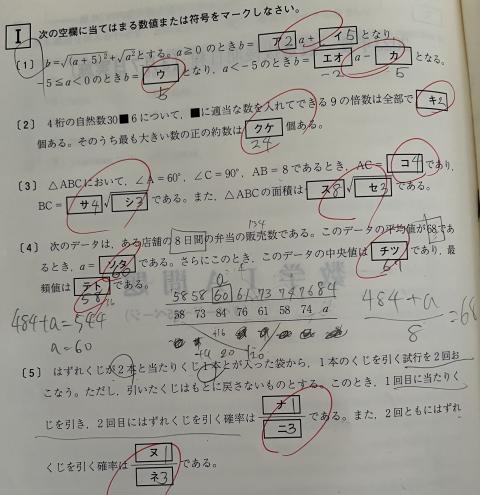 I 次の空欄に当てはまる数値または符号をマークしなさい。
〔1〕 b=√(a+5)²+√a²とする。a≧0 のときb= ア2 a+ イ5 となり,
-5≦a<0のときb= ウ となり, a<-5のときb= エオ a- カ となる。
5 -2 5
〔2〕 4桁の自然数30■6について, ■に適当な数を入れてできる9の倍数は全部で キ2
個ある。そのうち最も大きい数の正の約数は クケ 個ある。
24
〔3〕 △ABCにおいて, ∠A=60°, ∠C=90°, AB=8であるとき, AC= コ4 であり,
BC= サ4 √ シ3 である。また, △ABCの面積は ス8 √ セ3 である。
134
〔4〕 次のデータは, ある店舗の8日間の弁当の販売数である。このデータの平均値が68であ
るとき, a= ソタ である。さらにこのとき, このデータの中央値は チツ であり, 最
60 67
頻値は テト である。
58
58 58 60 61 73 74 76 84
58 73 84 76 61 58 74 a
484+a=544
a=60
484+a
8
=68
〔5〕 はずれくじが2本と当たりくじ1本とが入った袋から, 1本のくじを引く試行を2回お
こなう。ただし, 引いたくじはもとに戻さないものとする。このとき, 1回目に当たりく
じを引き, 2回目にはずれくじを引く確率は ナ1 ニ3 である。また, 2回ともにはずれ
くじを引く確率は ヌ1 ネ3 である。